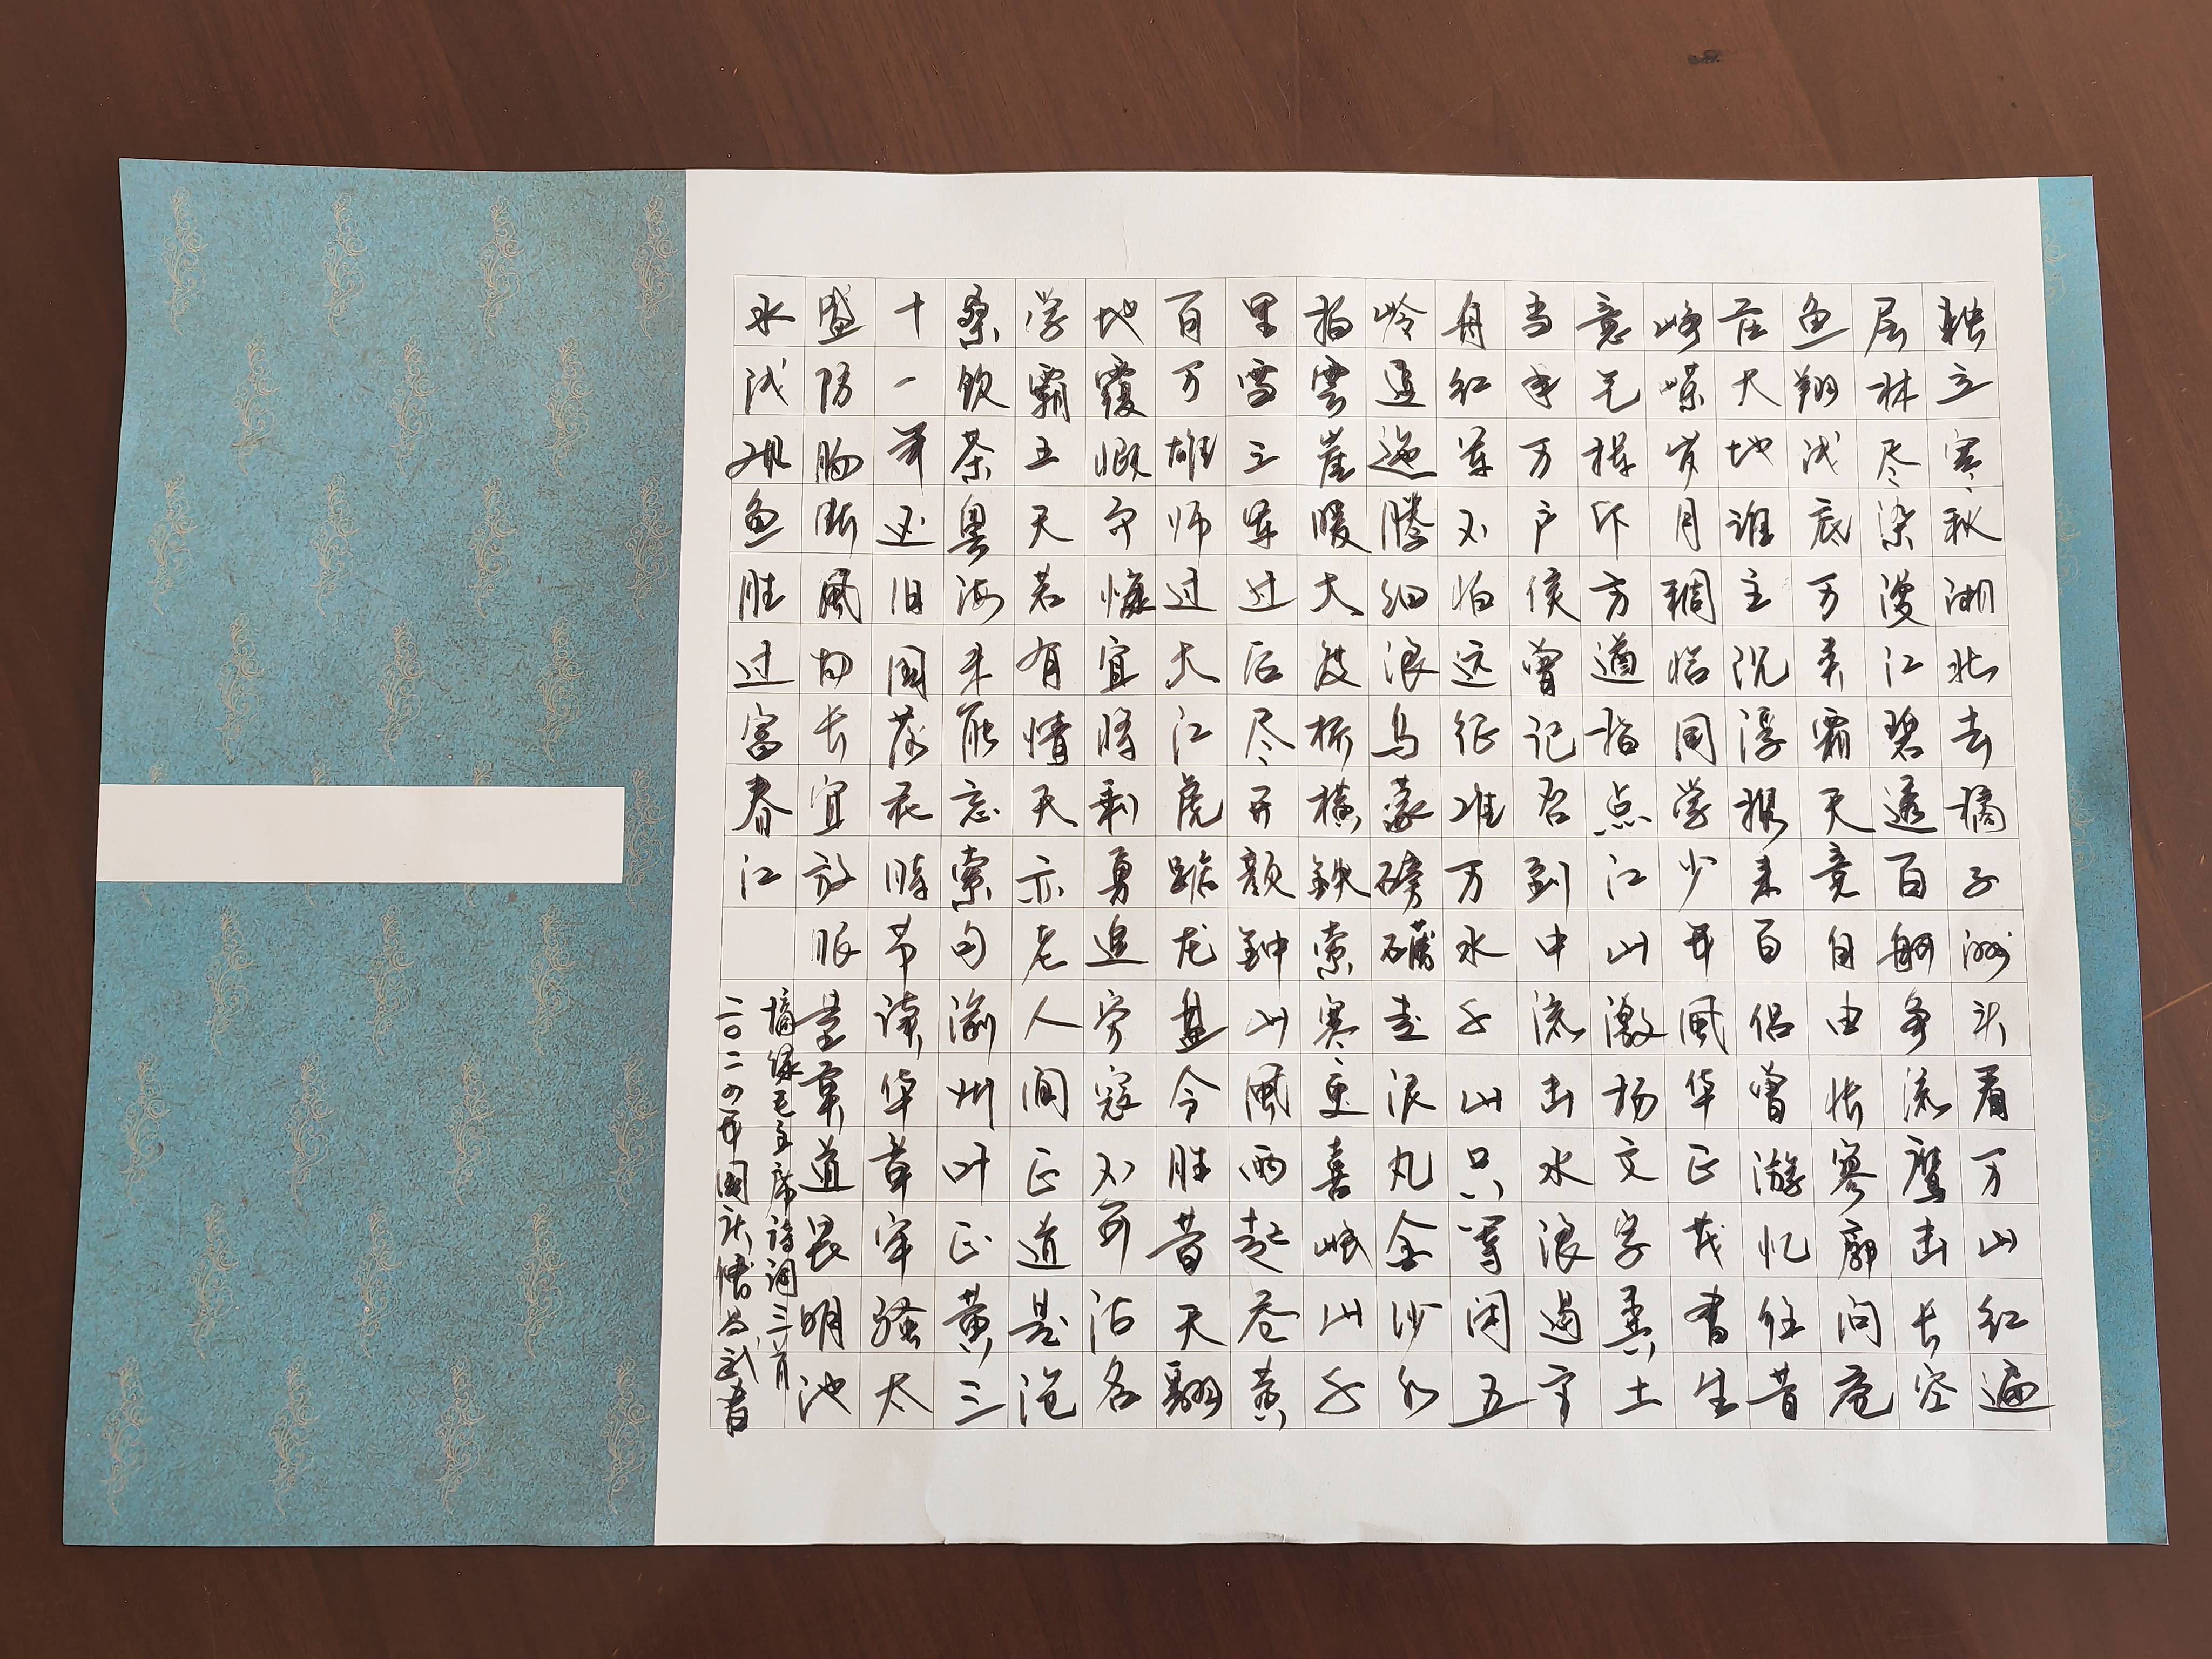 独立寒秋湘北去橘子洲头看万山红遍
层林尽染漫江碧透百舸争流鹰击长空
鱼翔浅底万类霜天竞自由怅寥廓问苍
茫大地谁主沉浮携来百侣曾游忆往昔
峥嵘岁月稠恰同学少年风华正茂书生
意气挥斥方遒指点江山激扬文字粪土
当年万户侯曾记否到中流击水浪遏飞
舟红军不怕远征难万水千山只等闲五
岭逶迤腾细浪乌蒙磅礴走泥丸金沙水
拍雲崖暖大渡桥横鉄索寒更喜岷山千
里雪三军过后尽开颜钟山风雨起苍黄
百万雄师过大江虎踞龙盘今胜昔天翻
地覆慨而慷宜将剩勇追穷寇不可沽名
学霸王天若有情天亦老人间正道是沧
桑饮茶粤海未能忘索句渝州叶正黄三
十一年还旧国落花时节读华章牢骚太
盛防肠断风物长宜放眼量莫道昆明池
水浅观鱼胜过富春江
摘录毛主席诗词三首
二〇二四年国庆书